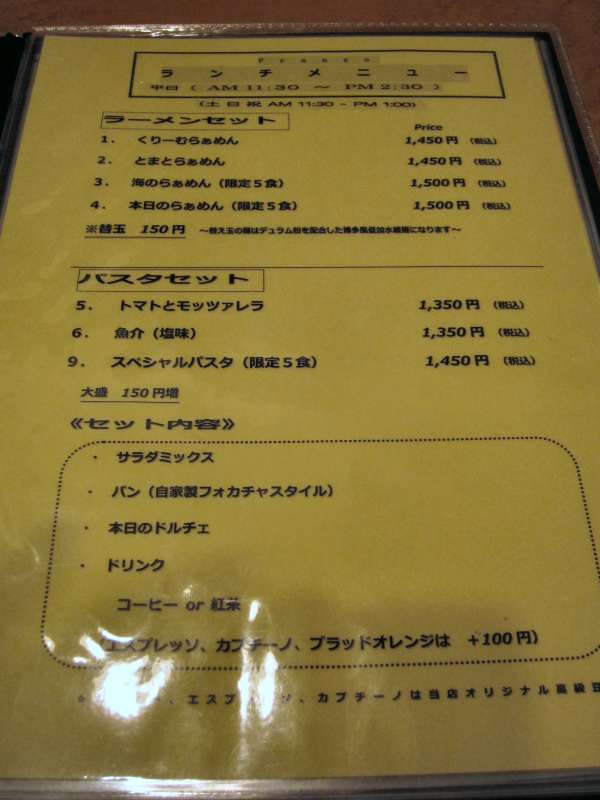 Pranzo
ランチメニュー
平日 ( AM 11:30 ～ PM 2:30 )
(土日祝 AM 11:30 - PM 1:00)
ラーメンセット
Price
1. くりーむらぁめん 1,450円 (税込)
2. とまとらぁめん 1,450円 (税込)
3. 海のらぁめん (限定5食) 1,500円 (税込)
4. 本日のらぁめん (限定5食) 1,500円 (税込)
※替玉 150円 ～替え玉の麺はデュラム粉を配合した博多風低加水細麺になります～
パスタセット
5. トマトとモッツァレラ 1,350円 (税込)
6. 魚介 (塩味) 1,350円 (税込)
9. スペシャルパスタ (限定5食) 1,450円 (税込)
大盛 150円増
《セット内容》
・ サラダミックス
・ パン (自家製フォカチャスタイル)
・ 本日のドルチェ
・ ドリンク
コーヒー or 紅茶
(エスプレッソ、カプチーノ、ブラッドオレンジは +100円)
、エスプ ソ、カプチーノは当店オリジナル高級豆